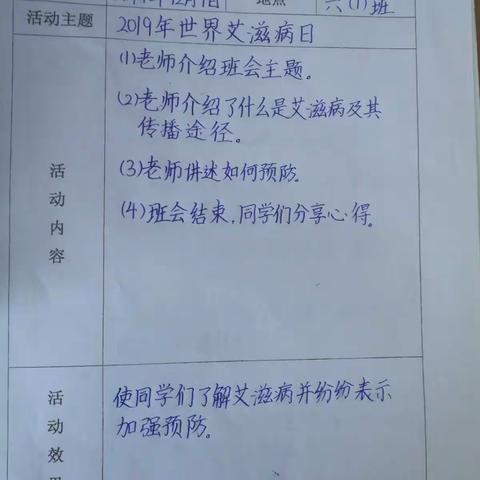 地点
六(1)班
活动主题
2019年世界艾滋病日
(1)老师介绍班会主题。
(2)老师介绍了什么是艾滋病及其
传播途径。
(3)老师讲述如何预防.
(4)班会结束,同学们分享心得。
活动内容
使同学们了解艾滋病并纷纷表示
加强预防。
活动效